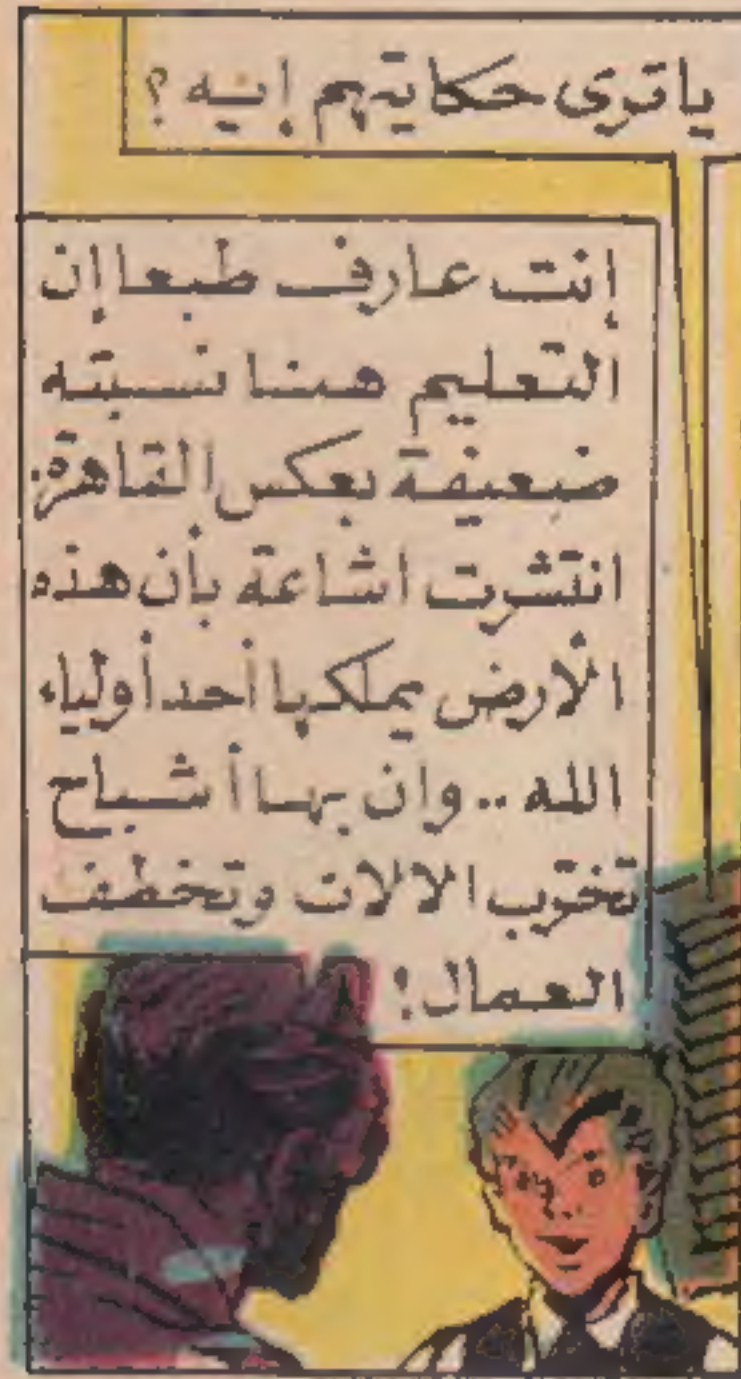 ياترى حكايتهم إيه ؟
إنت عارف طبعا إن
التعليم هنا نسبته
ضعيفة بعكس القاهرة:
انتشرت اشاعة بأن هذه
الأرض يملكها أحد أولياء
الله .. وان بها أشباح
تخرّب الالات وتخطف
العمال !